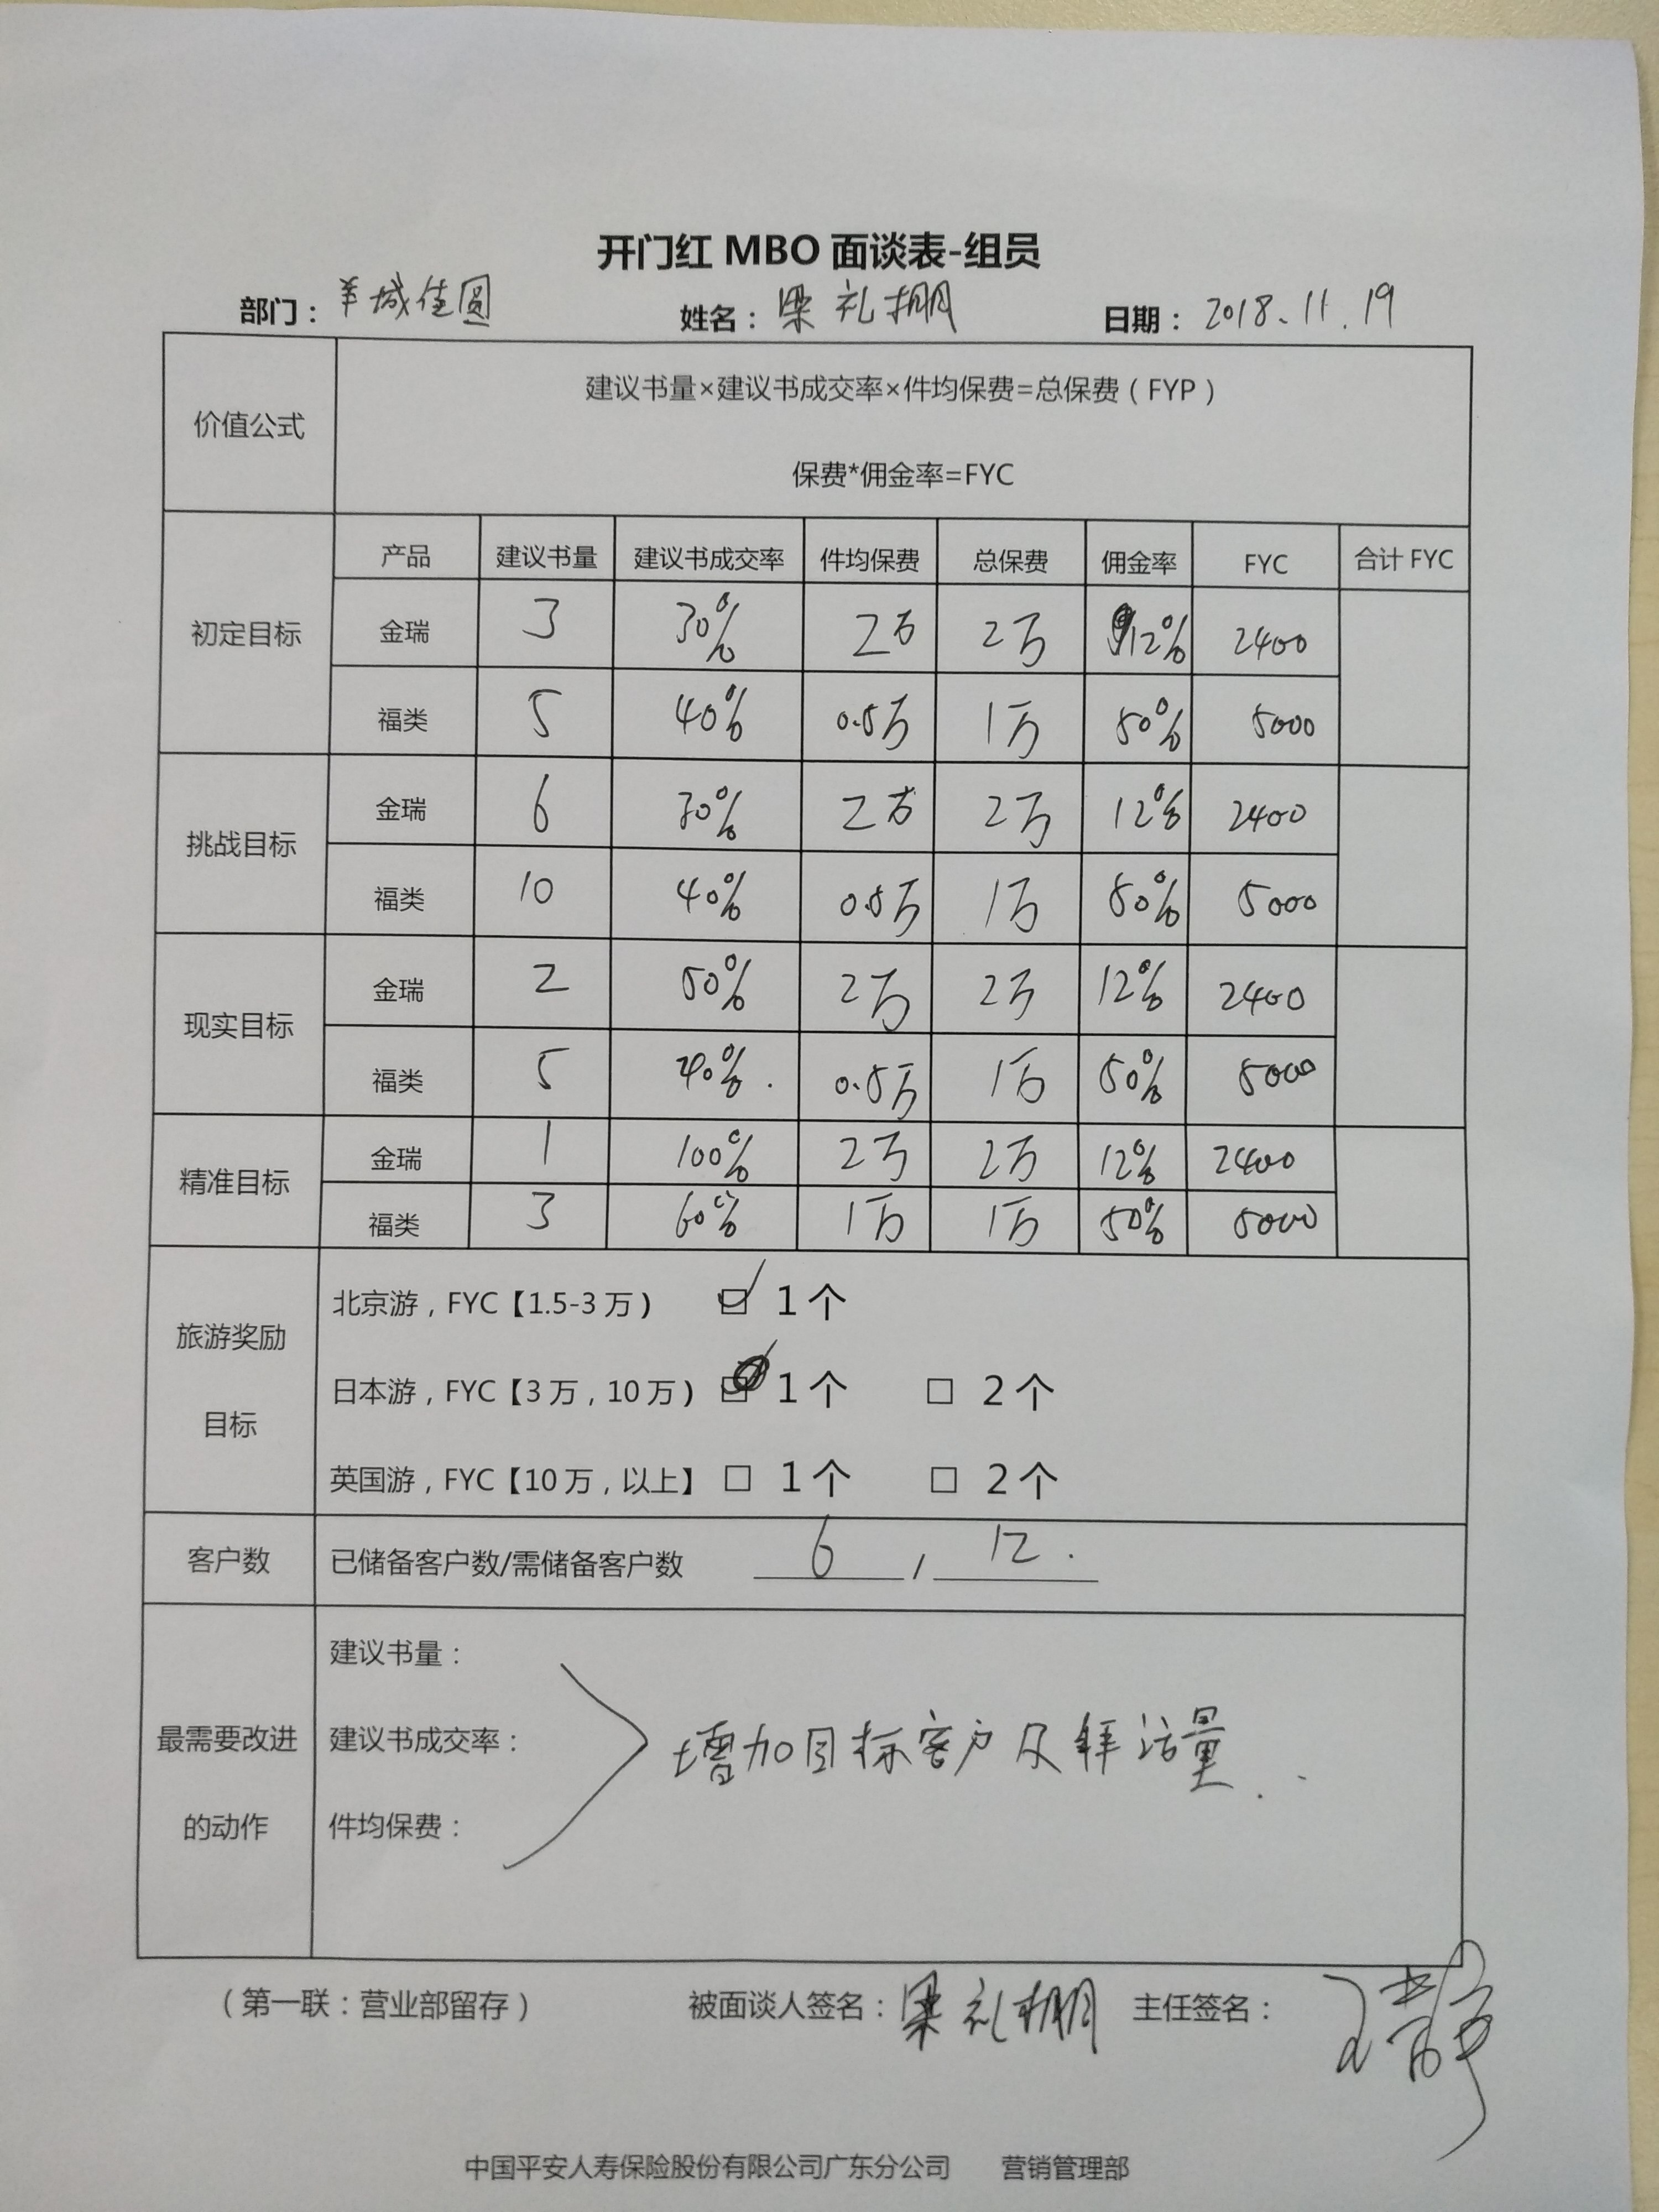 开门红 MBO 面谈表-组员
部门：羊城佳圆 姓名：梁礼棚 日期：2018.11.19
价值公式
建议书量×建议书成交率×件均保费=总保费（FYP）
保费*佣金率=FYC
产品 建议书量 建议书成交率 件均保费 总保费 佣金率 FYC 合计 FYC
初定目标
金瑞 3 30% 2万 2万 12% 2400
福类 5 40% 0.5万 1万 50% 5000
挑战目标
金瑞 6 30% 2万 2万 12% 2400
福类 10 40% 0.5万 1万 50% 5000
现实目标
金瑞 2 50% 2万 2万 12% 2400
福类 5 40% 0.5万 1万 50% 5000
精准目标
金瑞 1 100% 2万 2万 12% 2400
福类 3 60% 1万 1万 50% 5000
旅游奖励
目标
北京游，FYC【1.5-3 万） ☑ 1个
日本游，FYC【3 万，10 万） 1个 □ 2个
英国游，FYC【10 万，以上】 □ 1个 □ 2个
客户数 已储备客户数/需储备客户数 6 , 12.
最需要改进
的动作
建议书量：
建议书成交率：
件均保费：
增加目标客户及拜访量.
（第一联：营业部留存） 被面谈人签名：梁礼棚 主任签名：
中国平安人寿保险股份有限公司广东分公司 营销管理部